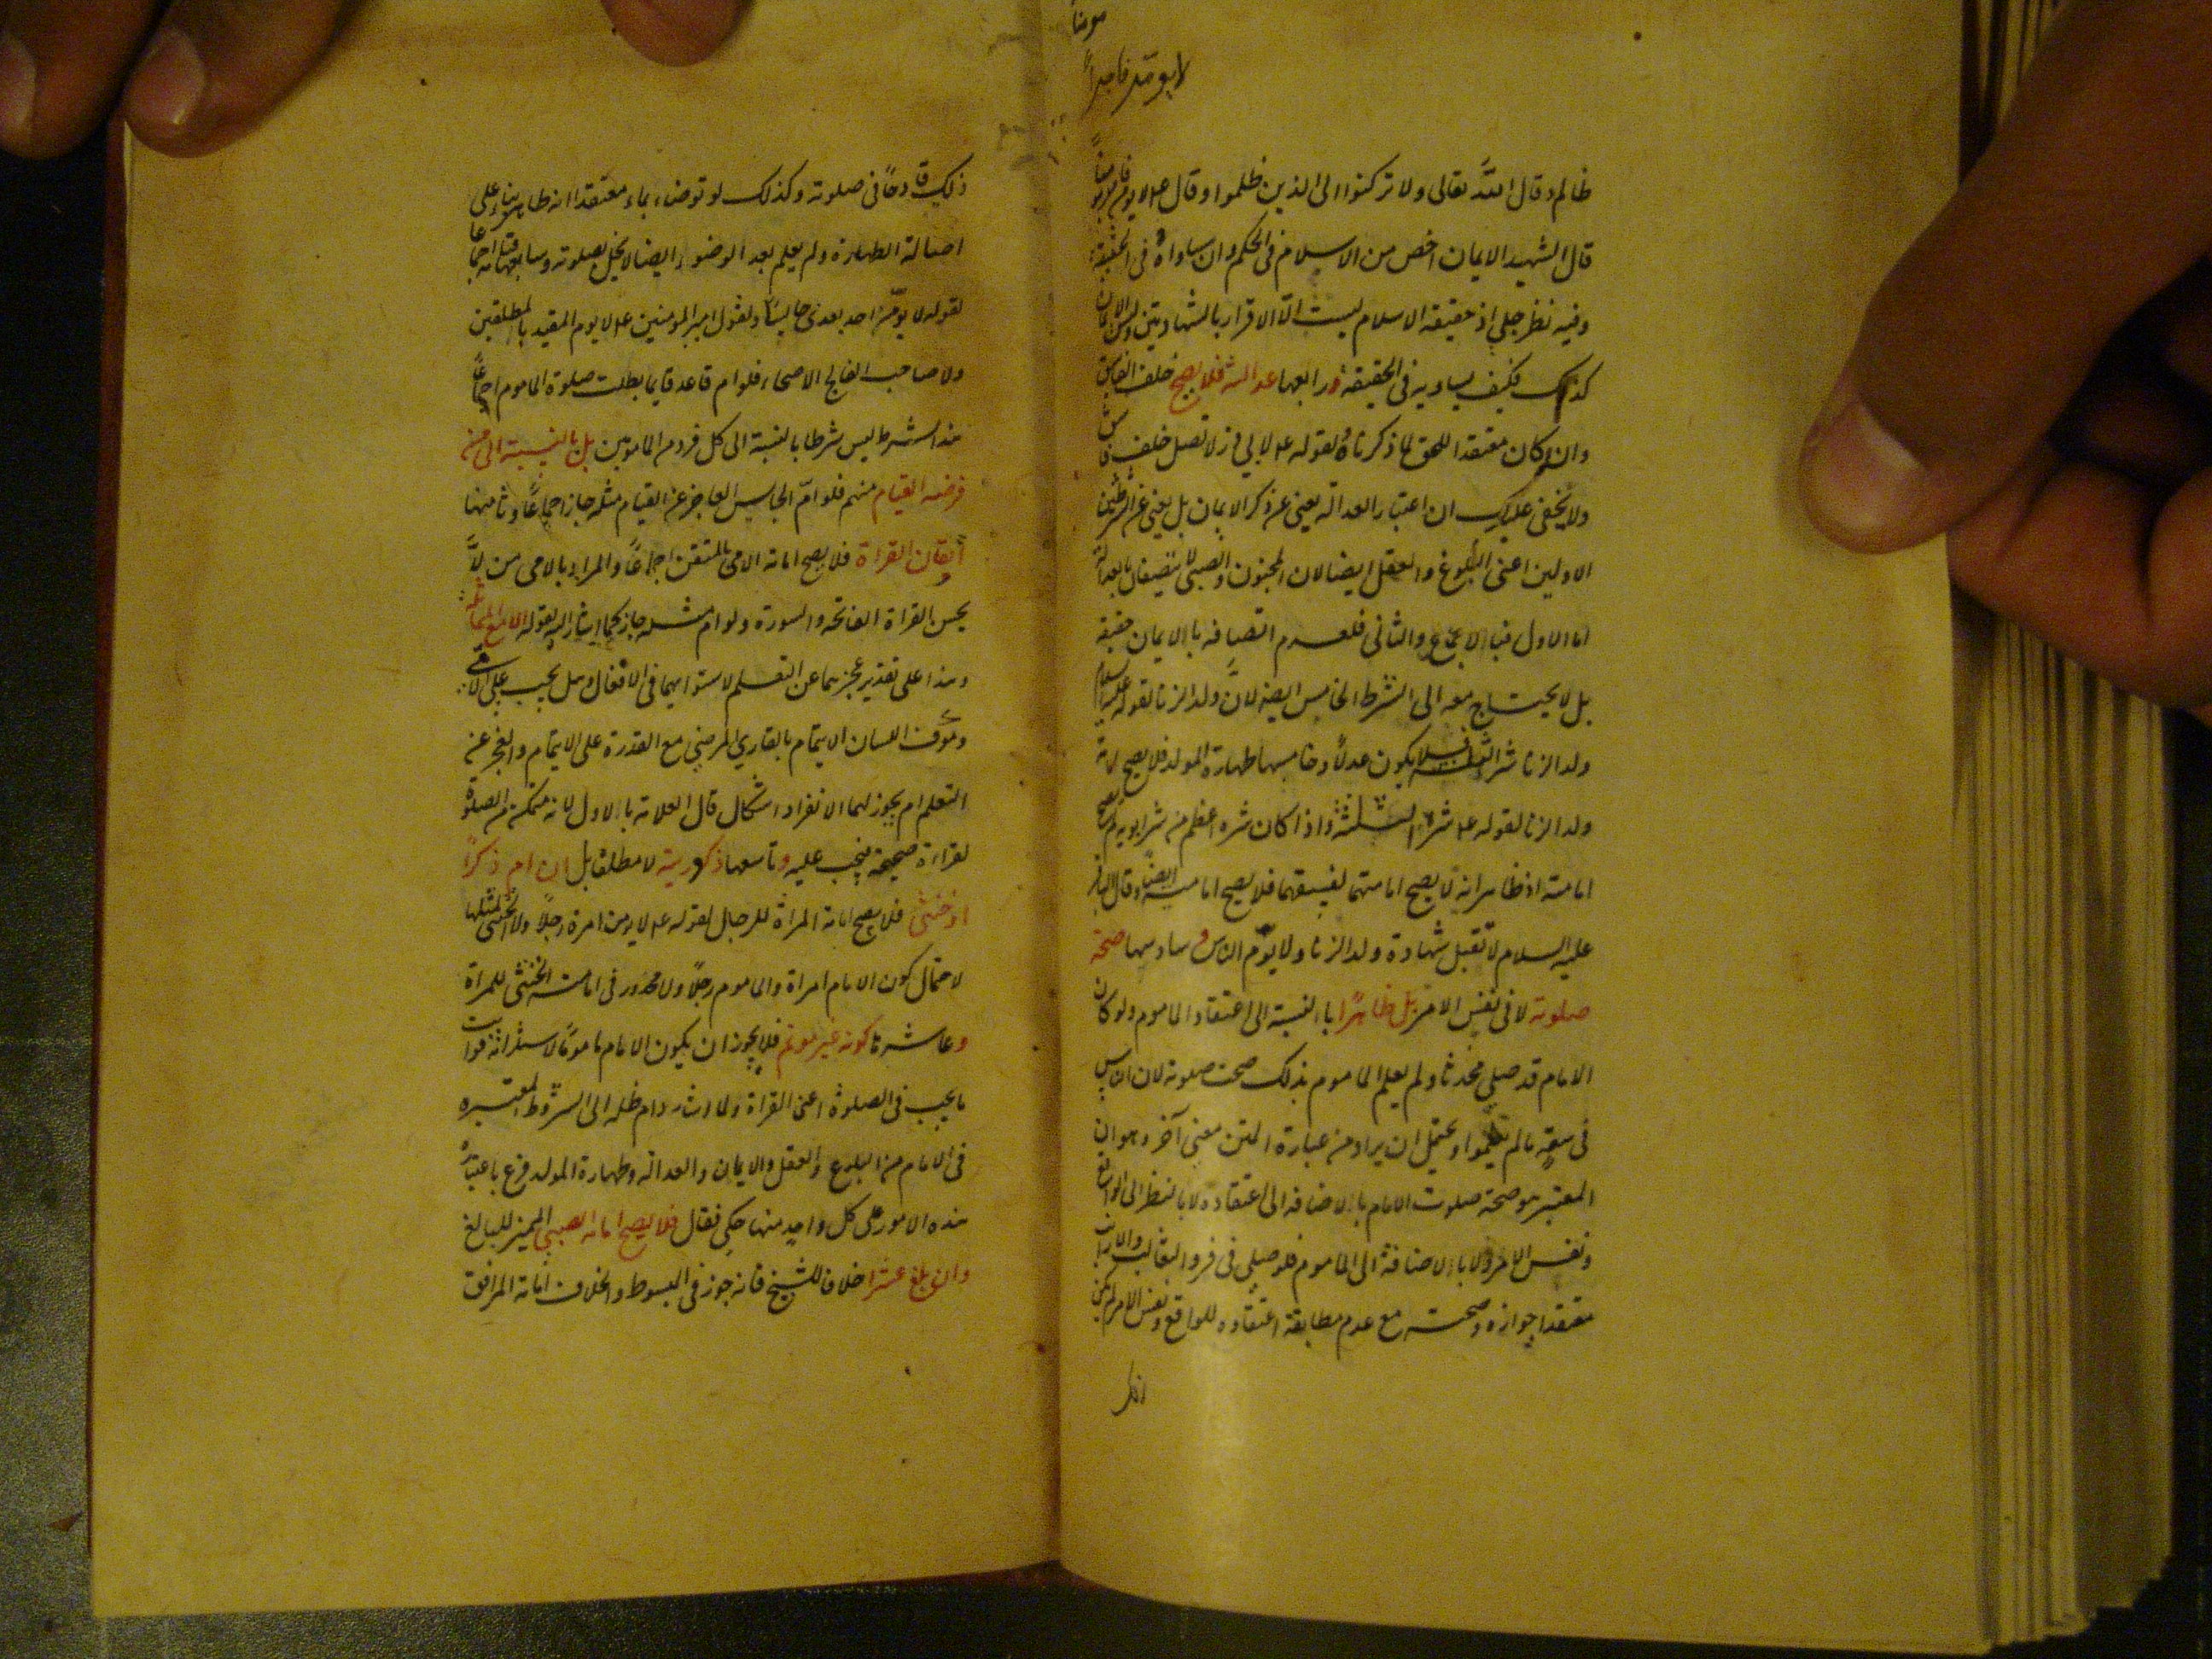 مومنا
لا يومّ فاجراً
ظالم وقال اللّه تعالى ولا تركنوا الى الذين ظلموا وقال ع لا يوم فاجر مومناً
قال الشهيد الايمان اخص من الاسلام فى الحكم وان ساواه فى الحقيقة
وفيه نظر جلى اذ حقيقة الاسلام ليست الّا الاقرار بالشهادتين وليس الايمان
كذلك فكيف يساويه فى الحقيقة ورابعها عدالته فلا يصح خلف الفاسق
وان كان معتقدا للحق لما ذكرناه ولقوله ع لابي ذر لا تصل خلف فاسق
ولا يخفى عليك ان اعتبار العدالة يغنى عن ذكر الايمان بل يغنى عن الشرطين
الاولين اعنى البلوغ والعقل ايضا لان المجنون والصبى لا يتصفان بالعدالة
اما الاول فبالاجماع والثانى فلعدم اتصافه بالايمان حقيقة
بل لا يحتاج معه الى الشرط الخامس ايضا لانّ ولد الزنا لقوله عليه السلام
ولد الزنا شر الثلثة لا يكون عدلاً وخامسها طهارة المولد فلا يصح امامة
ولد الزنا لقوله ع شر الثلثة واذا كان شره اعظم من شر ابويه لم يصح
امامته اذ ظاهر انه لا يصح امامتهما لفسقهما فلا يصح امامته ايضاً وقال الباقر
عليه السلام لا تقبل شهادة ولد الزنا ولا يومّ الناس وسادسها صحة
صلوته لا فى نفس الامر بل ظاهراً بالنسبة الى اعتقاد الماموم ولو كان
الامام قد صلى محدثا ولم يعلم الماموم بذلك صحت صلوته لان الناس
فى سعة ما لم يعلموا ويحتمل ان يراد من عبارة المتن معنى آخر وهو ان
المعتبر هو صحة صلوت الامام بالاضافة الى اعتقاده لا بالنظر الى الواقع
ونفس الامر ولا بالاضافة الى الماموم فلو صلى فى فرو الثعالب والارانب
معتقدا جوازه وصحته مع عدم مطابقة اعتقاده للواقع ونفس الامر لم يكن
ذلك قادحاً فى صلوته وكذلك لو توضاء بماء معتقدا انه طاهر بناء على
اصالة الطهارة ولم يعلم بعد الوضوء ايضا لا يخل بصلوته وسابعها قيامه اجماعا
لقوله لا يومّن احد بعدى جالسًا ولقول امير المومنين ع لا يوم المقيد المطلقين
ولا صاحب الفالج الاصحاء فلو ام قاعد قايما بطلت صلوة الماموم اجماعاً
هذا الشرط ليس شرطا بالنسبة الى كل فرد من المامومين بل بالنسبة الى من
فرضه القيام منهم فلو امّ الجالس العاجز عن القيام مثله جاز اجماعاً وثامنها
اتقان القراة فلا يصح امامة الامى بالمتقن اجماعاً والمراد بالامى من لا
يحسن القراة الفاتحه والسورة ولو ام مثله جاز كما اشار اليه بقوله الا مع المماثلة
وهذا على تقدير عجزهما عن التعلم لاستوايهما فى الافعال وهل يجب على الامى
ومؤف اللسان الايتمام بالقارى المرضي مع القدرة على الايتمام والعجز عن
التعلم ام يجوز لهما الانفراد اشكال قال العلامة بالاول لانه متمكن من الصلوة
لقراءة صحيحة فيجب عليه وتاسعها ذكوريته لا مطلقا بل ان ام ذكرًا
او خنثى فلا يصح امامة المراة للرجال لقوله ع لا يومن امرة رجلاً ولا الخنثى لمثلها
لاحتمال كون الامام امراة والماموم رجلاً ولا محذور فى امامة الخنثى للمراة
وعاشرها كونه غير موتم فلا يجوز ان يكون الامام ماموماً لاستلزامه فوات
ما يجب فى الصلوة اعنى القراة ولما اشار دام ظله الى الشروط المعتبره
فى الامام من البلوغ والعقل والايمان والعدالة وطهارة المولد فرع باعتبار
هذه الامور على كل واحد منها حكم فقال فلا يصح امامة الصبى المميز للبالغ
وان بلغ عشرا خلافا للشيخ فانه جوز فى المبسوط والخلاف امامة المراهق